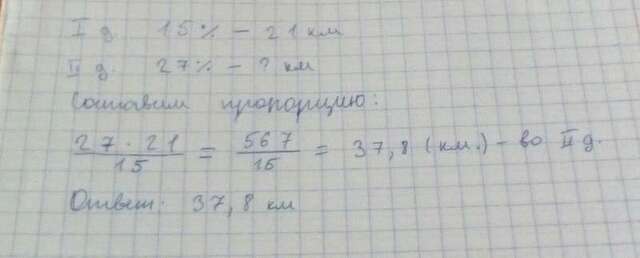 I д. 15% – 21 км
II д. 27% – ? км
Составим пропорцию:
27 · 21 / 15 = 567 / 15 = 37,8 (км.) – во II д.
Ответ: 37,8 км